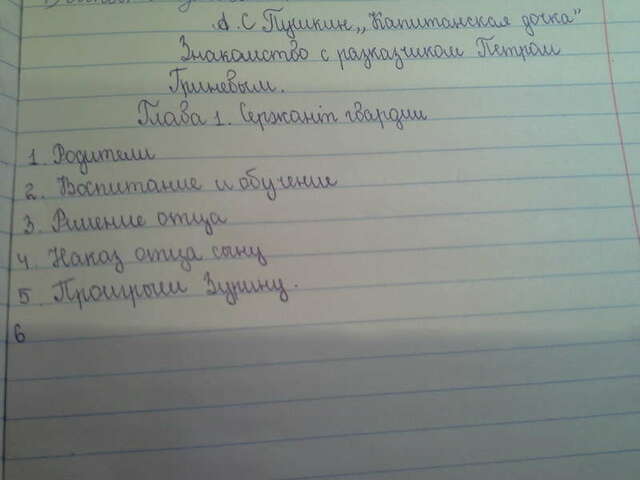 А. С Пушкин „Капитанская дочка"
Знакомство с разказчиком Петром
Гриневым.
Глава 1. Сержант гвардии
1. Родители
2. Воспитание и обучение
3. Решение отца
4. Наказ отца сыну
5. Проигрыш Зурину.
6